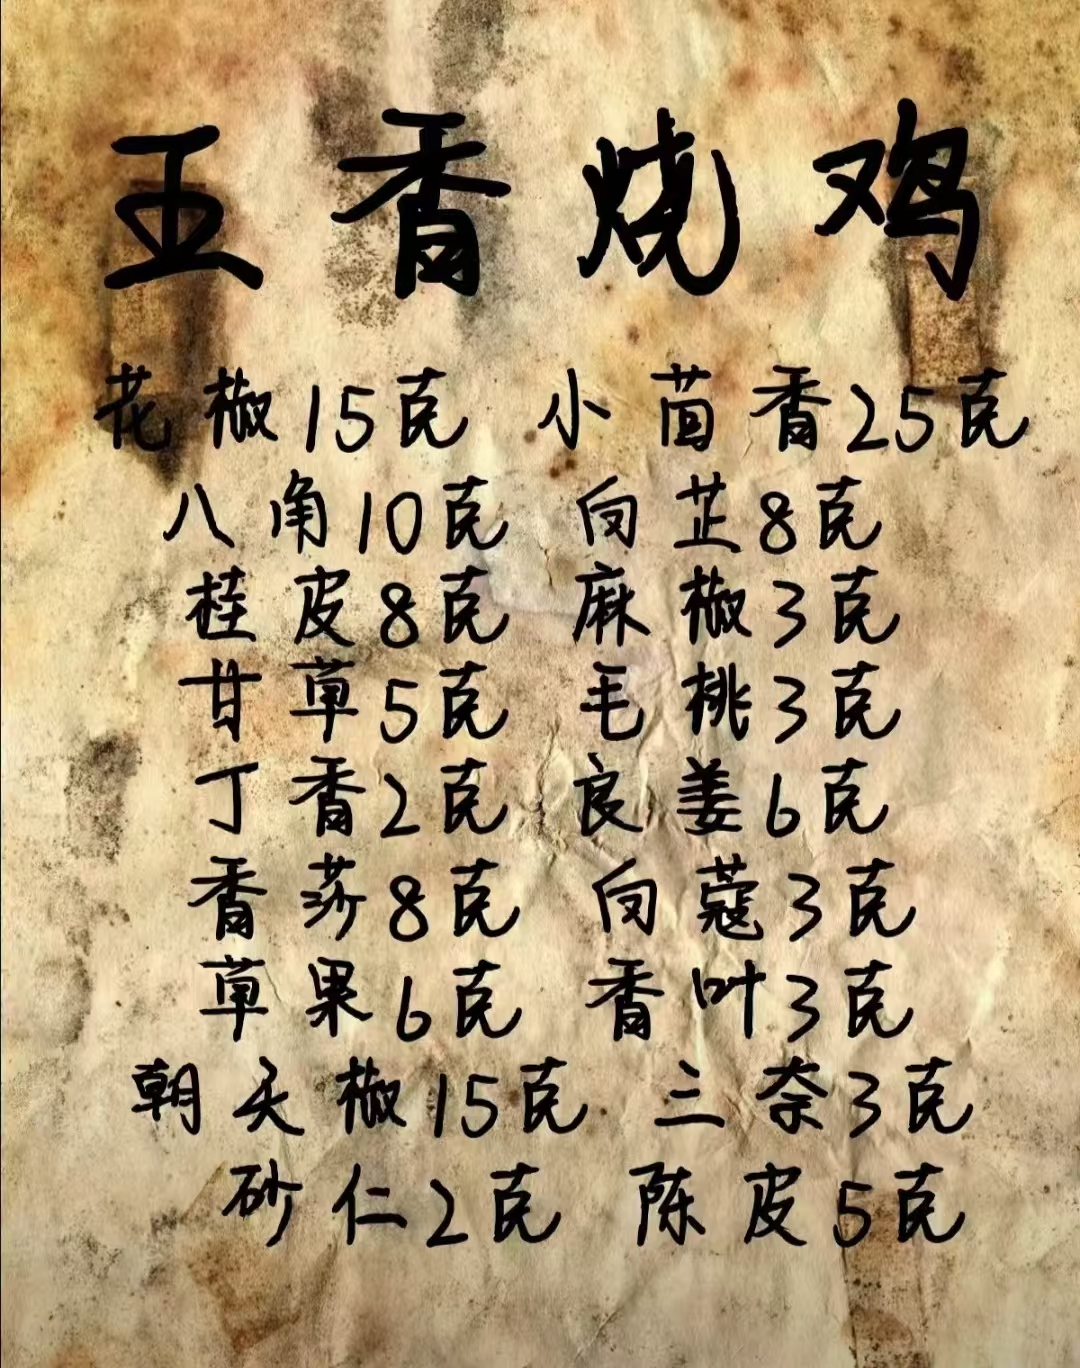 五香烧鸡
花椒15克 小茴香25克
八角10克 白芷8克
桂皮8克 麻椒3克
甘草5克 毛桃3克
丁香2克 良姜6克
香莎8克 白蔻3克
草果6克 香叶3克
朝天椒15克 三奈3克
砂仁2克 陈皮5克